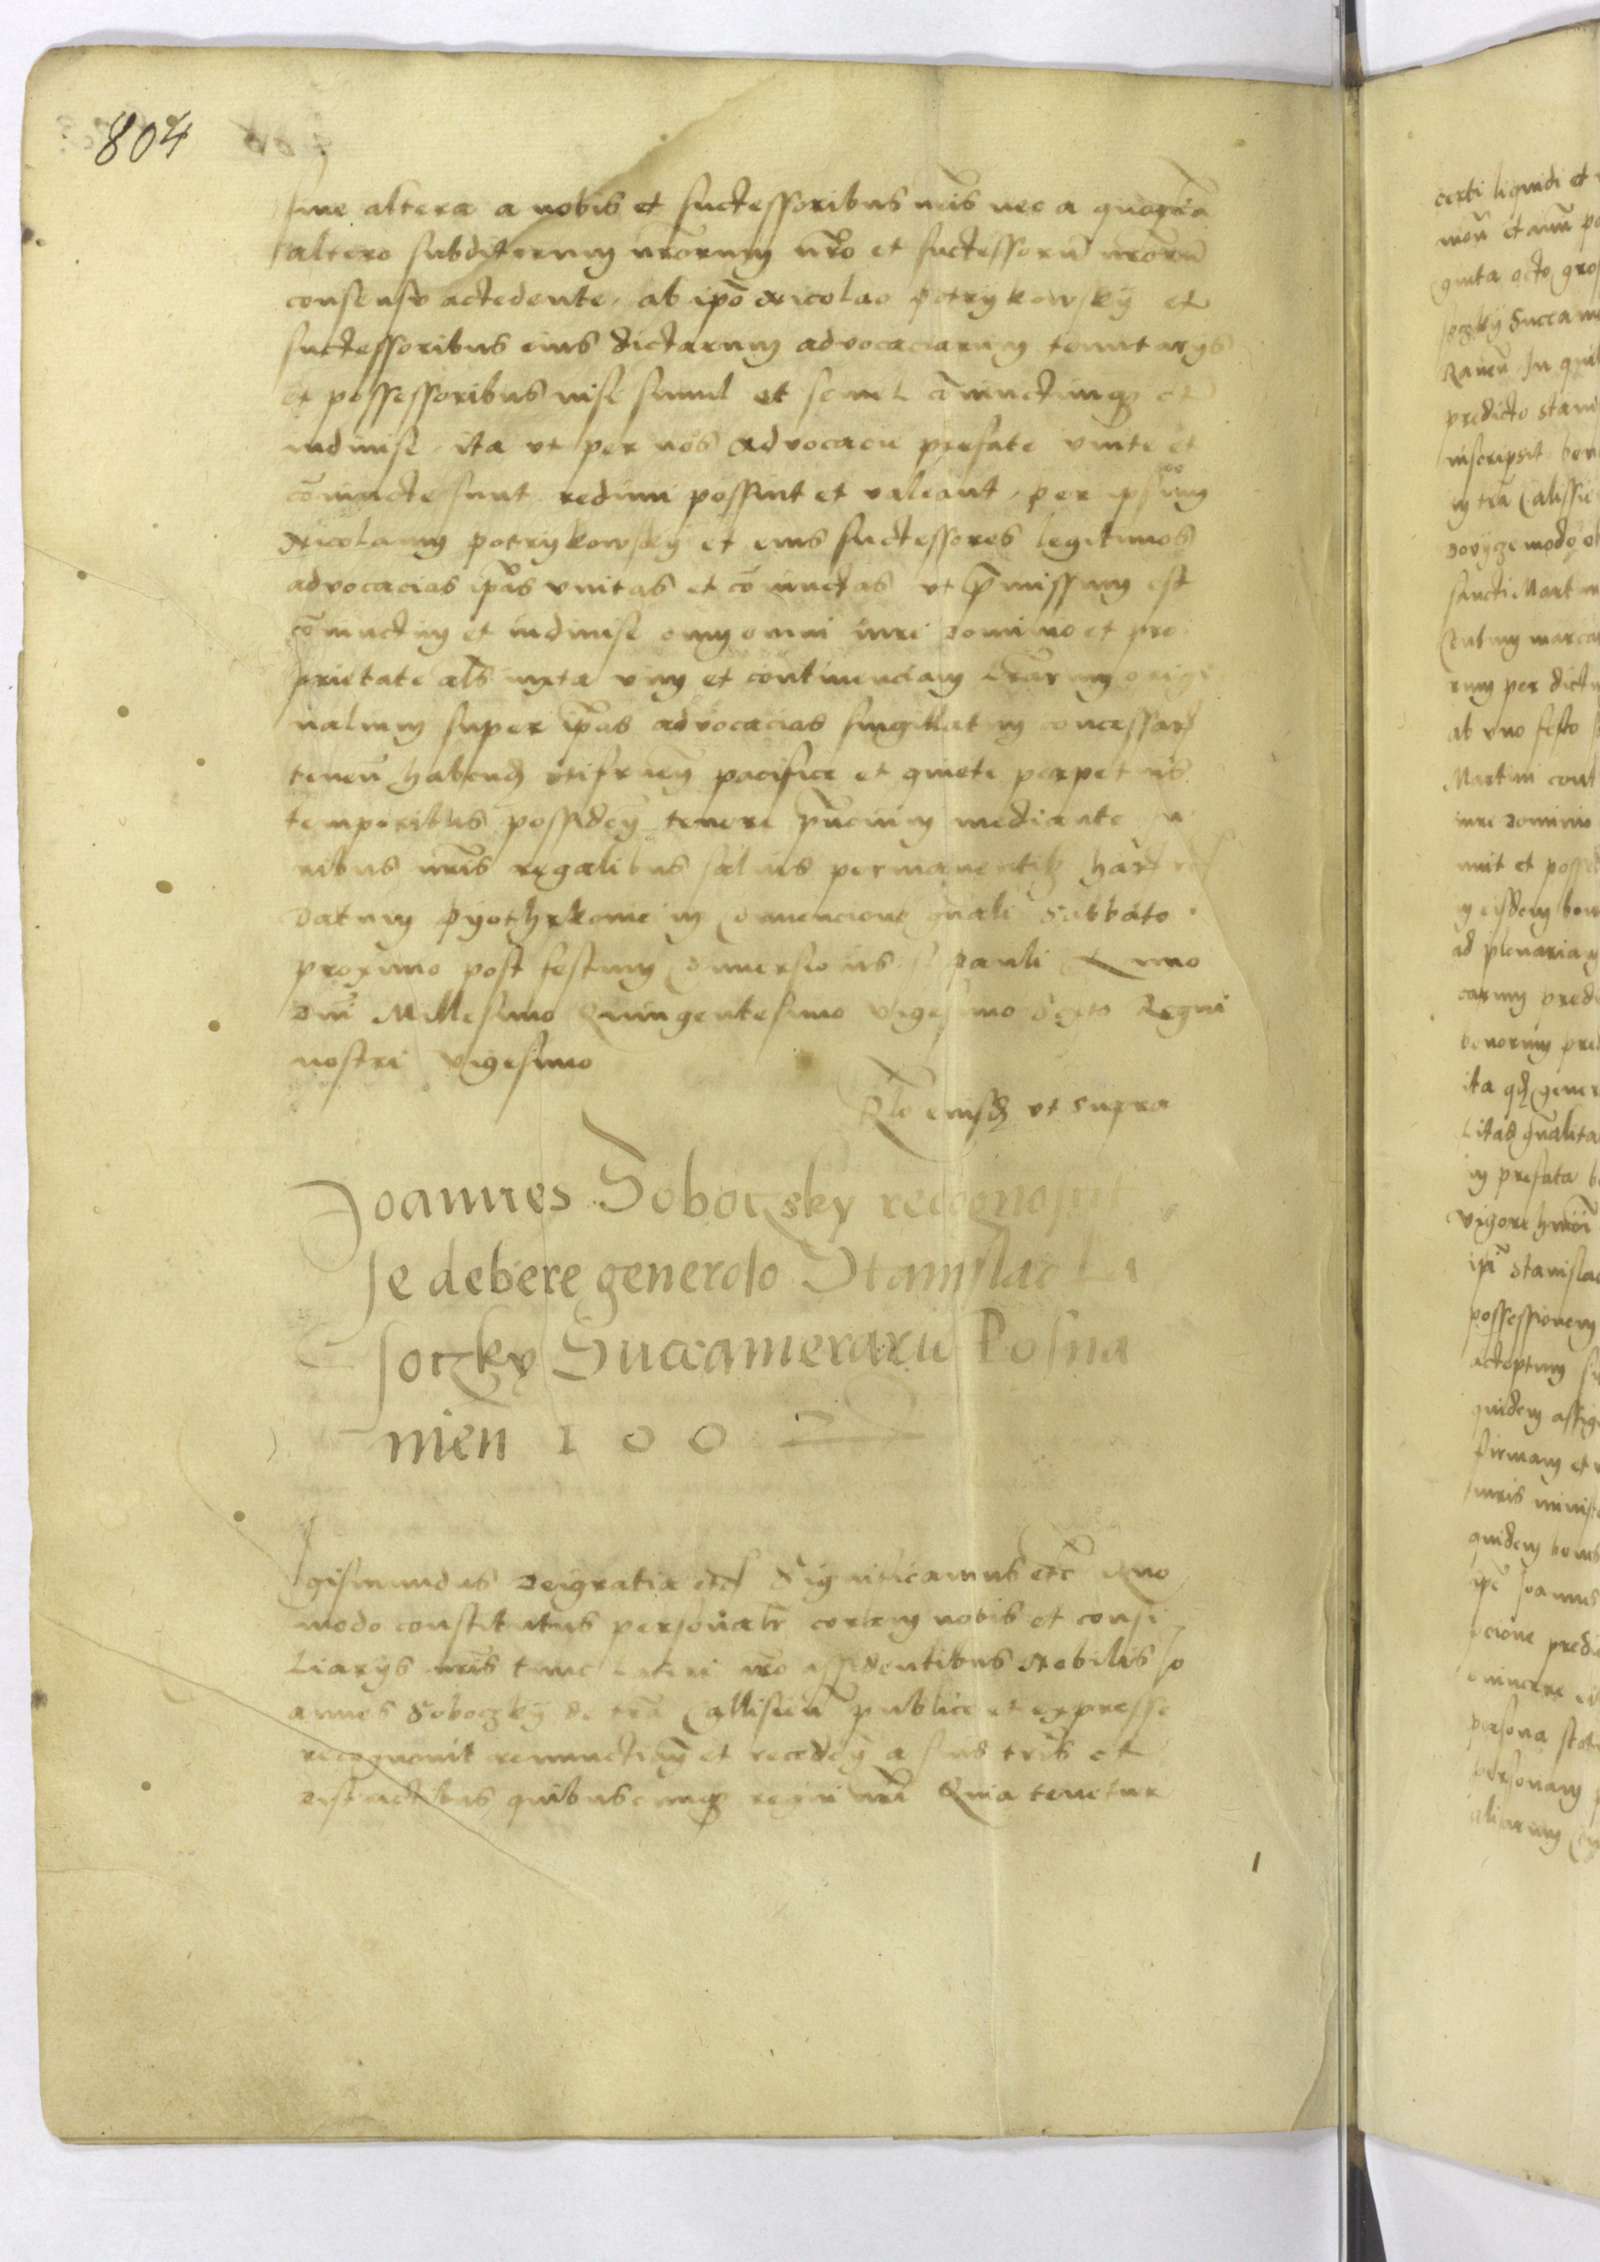 804
sive altera a nobis et successoribus nris nec a quoqua
altero subditorum nrorum nro et successoru nroru
consensu accedente, ab ipo Nicolao Potrykowsky et
successoribus eius dictarum advocaciarum tenutarys
et possessoribus nisi simul et semel coniunctimqz et
indivise, ita ut per nos advocacie prefate unite et
coniuncte sunt redimi possint et valeant, per ipsum
Nicolaum Potrykowsky et eius successores legitimos
advocacias ipas unitas et coniunctas ut pmissum est
coniunctim et indivise cum omni iure dominio et pro
prietate als iuxta vim et continenciam lrarum origi
nalium super ipas advocacias singillatim concessar
tenen habend utifruen pacifice et quiete perpetuis
temporibus possiden tenore pncium mediante iu
ribus nris regalibus salvis permanentibz har
Datum Pyothrkovie in Convencione gnali Sabbato
proximo post festum Conversionis s Pauli Anno
Dni Millesimo Quingentesimo Vigesimo Sexto Regni
nostri Vigesimo
Rlo eiusd ut supra
Joannes Soboczsky recognoscit
se debere generoso Stanislao La
soczky Succamerario Posna
nien 100
Sigismundus Dei gratia etc Significamus etc Quo
modo constitutus personalr coram nobis et consi
liarys nris tunc lateri nro assidentibus Nobilis Jo
annes Soboczky de tra Callisien publice et expresse
recognovit renunctian et receden a suis tris et
districtibus quibuscumqz regni nri Quia tenetur
certi liquidi et
mon et num po
ginta octo gros
soczky Succame
Raven In quib
predicto Stanis
inscripsit bon
in tra Calissien
modo
sancti Martin
Centum marcar
rum per dictu
ab uno festo
Martini cont
iure dominio
nuit et possed
in eisdem bon
ad plenariam
carum pred
bonorum pred
ita qd gener
litas qualita
in prefata b
Vigore hmoi
ipi Stanislao
possessionem
acceptum
quidem assig
firmam et
iuris minist
quidem bonis
ipe Joannes
cione predi
evincere
persona
personam
aliarum